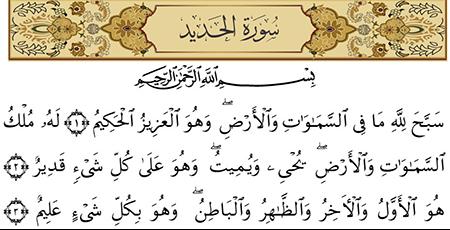 سُورَةُ الحَدِيدِ
بِسْمِ ٱللَّهِ ٱلرَّحْمَٰنِ ٱلرَّحِيمِ
سَبَّحَ لِلَّهِ مَا فِى ٱلسَّمَٰوَٰتِ وَٱلْأَرْضِۖ وَهُوَ ٱلْعَزِيزُ ٱلْحَكِيمُ ﴿١﴾ لَهُۥ مُلْكُ
ٱلسَّمَٰوَٰتِ وَٱلْأَرْضِۖ يُحْىِۦ وَيُمِيتُۖ وَهُوَ عَلَىٰ كُلِّ شَىْءٍ قَدِيرٌ ﴿٢﴾
هُوَ ٱلْأَوَّلُ وَٱلْءَاخِرُ وَٱلظَّٰهِرُ وَٱلْبَاطِنُۖ وَهُوَ بِكُلِّ شَىْءٍ عَلِيمٌ ﴿٣﴾